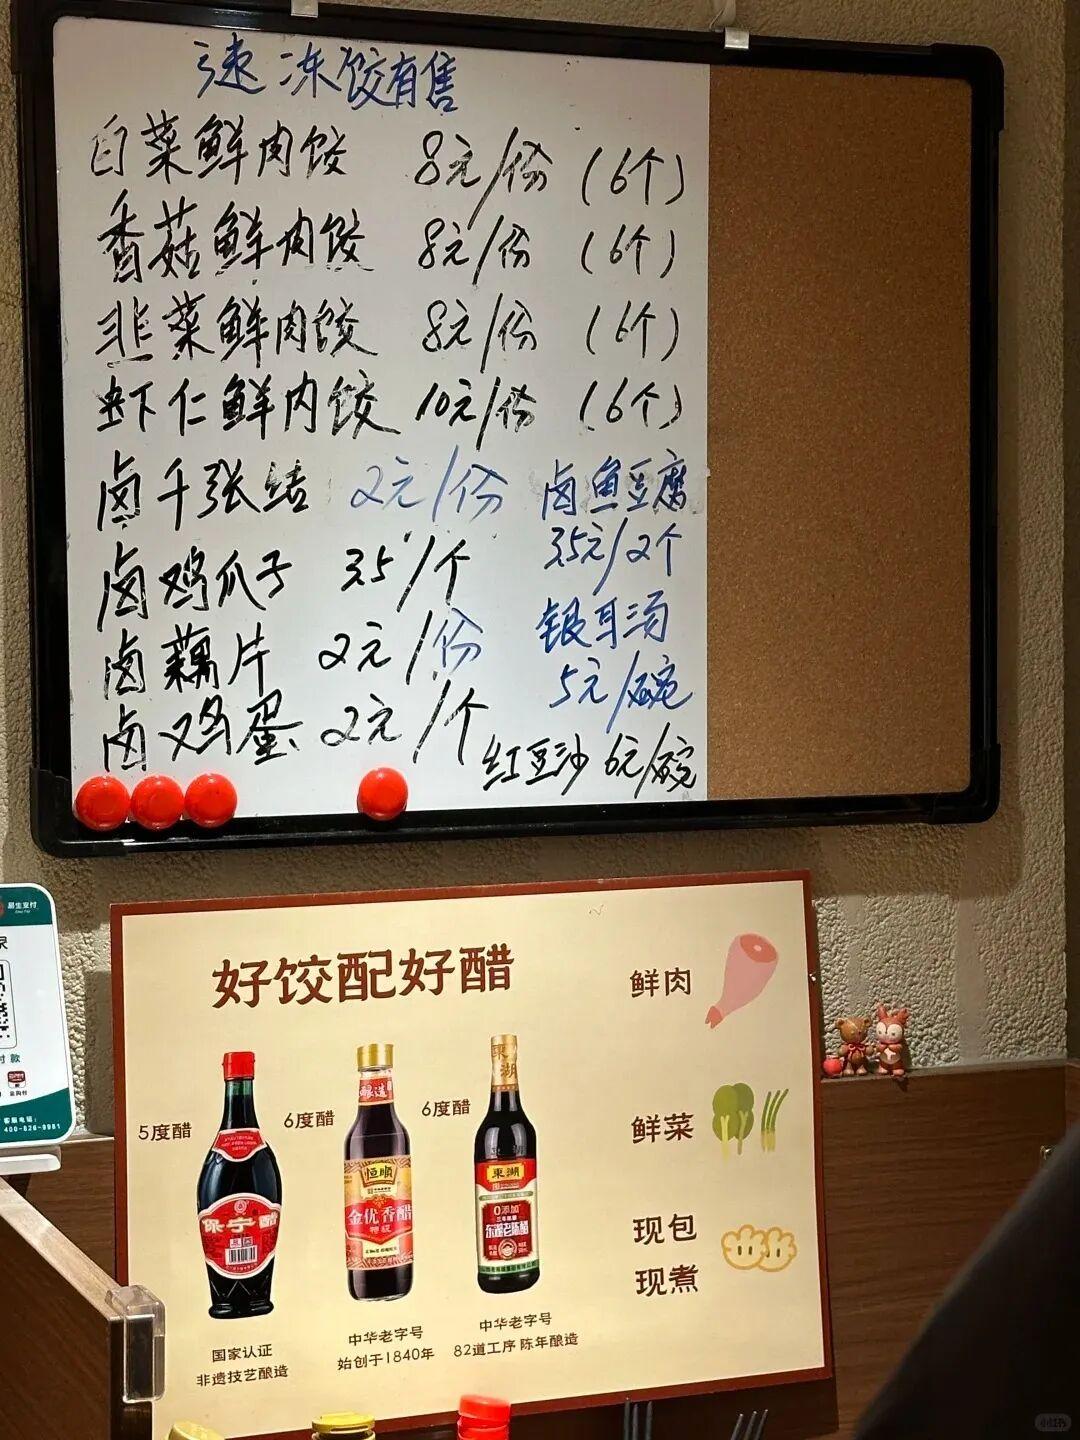 速冻饺有售
白菜鲜肉饺 8元/份 (6个)
香菇鲜肉饺 8元/份 (6个)
韭菜鲜肉饺 8元/份 (6个)
虾仁鲜肉饺 10元/份 (6个)
卤千张结 2元/份
卤鸡爪子 3.5/个
卤藕片 2元/份
卤鸡蛋 2元/个
卤鱼豆腐
3.5元/2个
银耳汤
5元/碗
红豆沙 6元/碗
易生支付
付款
客服电话:
400-826-9981
好饺配好醋
5度醋
6度醋
6度醋
保宁醋
酿造
恒顺
金优香醋
特级
東湖
東湖
0添加
东湖老陈醋
国家认证
非遗技艺酿造
中华老字号
始创于1840年
中华老字号
82道工序 陈年酿造
鲜肉
鲜菜
现包
现煮
小红书